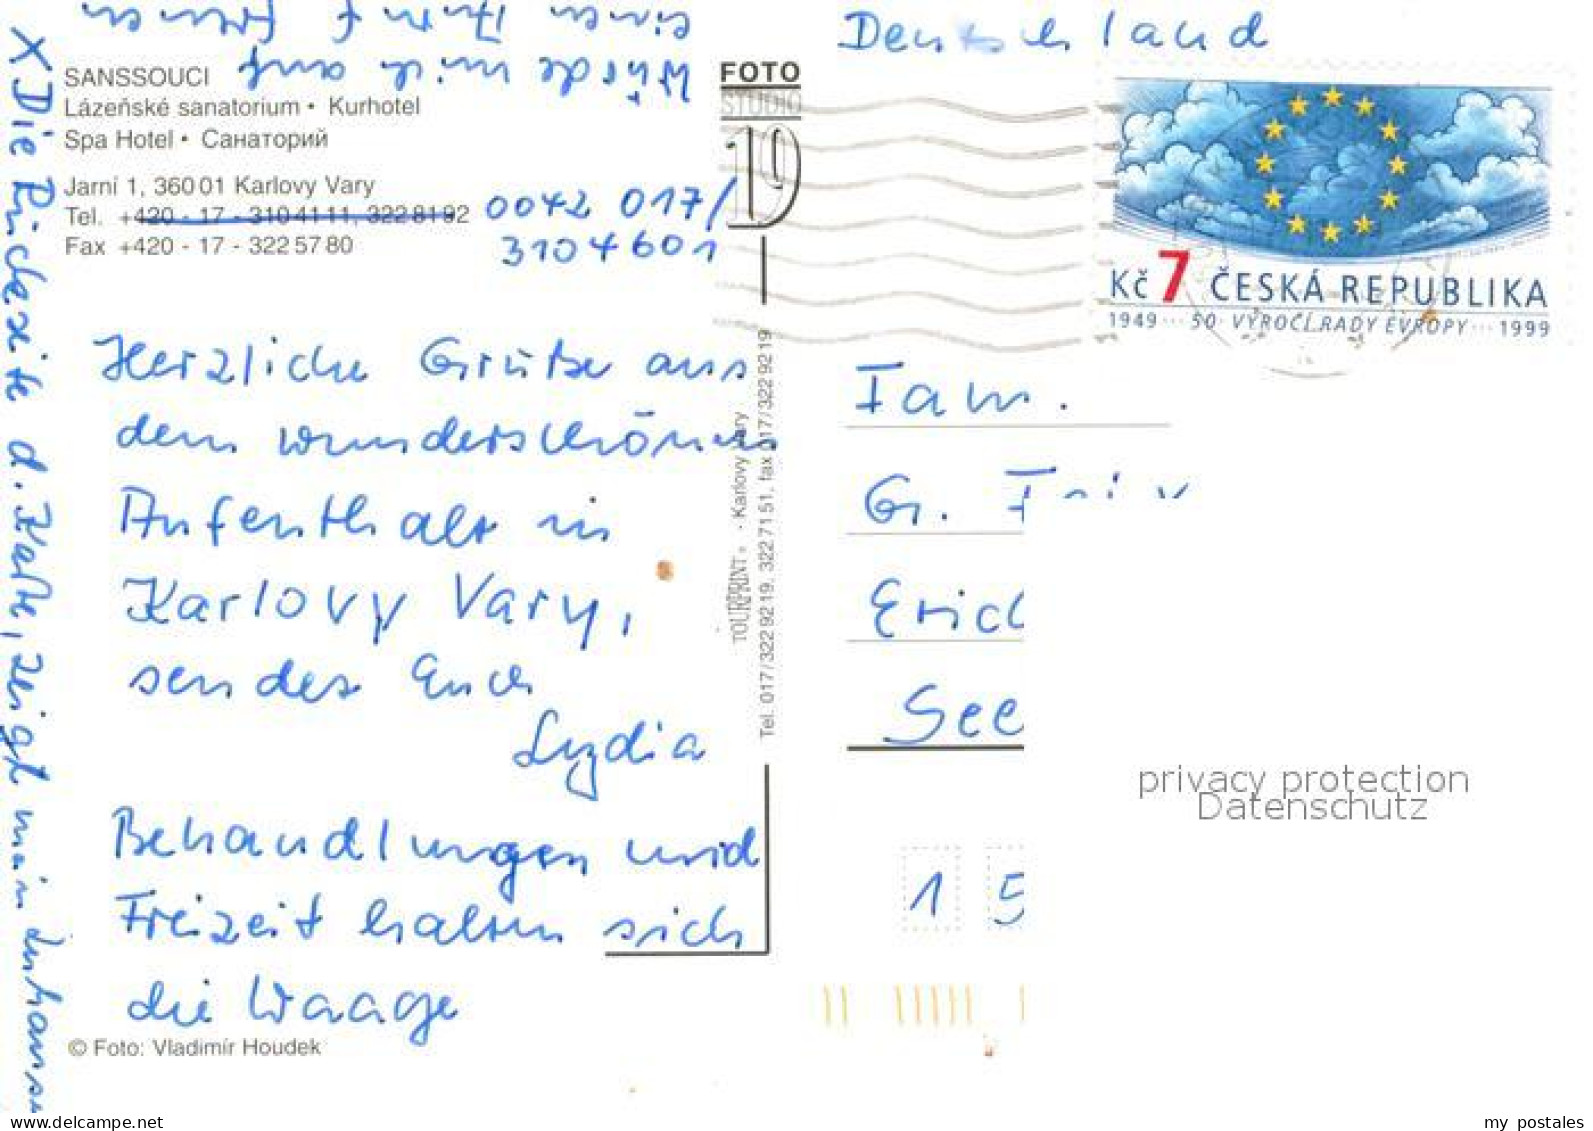 Würde mich auf
einen Anruf freuen
SANSSOUCI
Lázeňské sanatorium • Kurhotel
Spa Hotel • Санаторий
Jarní 1, 360 01 Karlovy Vary
Tel. +420 - 17 - 310 41 11, 322 81 92
Fax +420 - 17 - 322 57 80
0042 017/
3104601
Herzliche Grüße aus
dem wunderschönen
Aufenthalt in
Karlovy Vary,
sendet Euch
Lydia
Behandlungen und
Freizeit halten sich
die Waage
© Foto: Vladimír Houdek
X Die Rückseite d. Karte, zeigt mein
FOTO
STUDIO
19
TOURPRINT® · Karlovy Vary
Tel. 017/322 92 19, 322 71 51, fax 017/322 92 19
Deutschland
Kč 7 ČESKÁ REPUBLIKA
1949 ··· 50. VÝROČÍ RADY EVROPY ··· 1999
Fam.
Gr.
Eric
See
1 5
privacy protection
Datenschutz
www.delcampe.net
my_postales